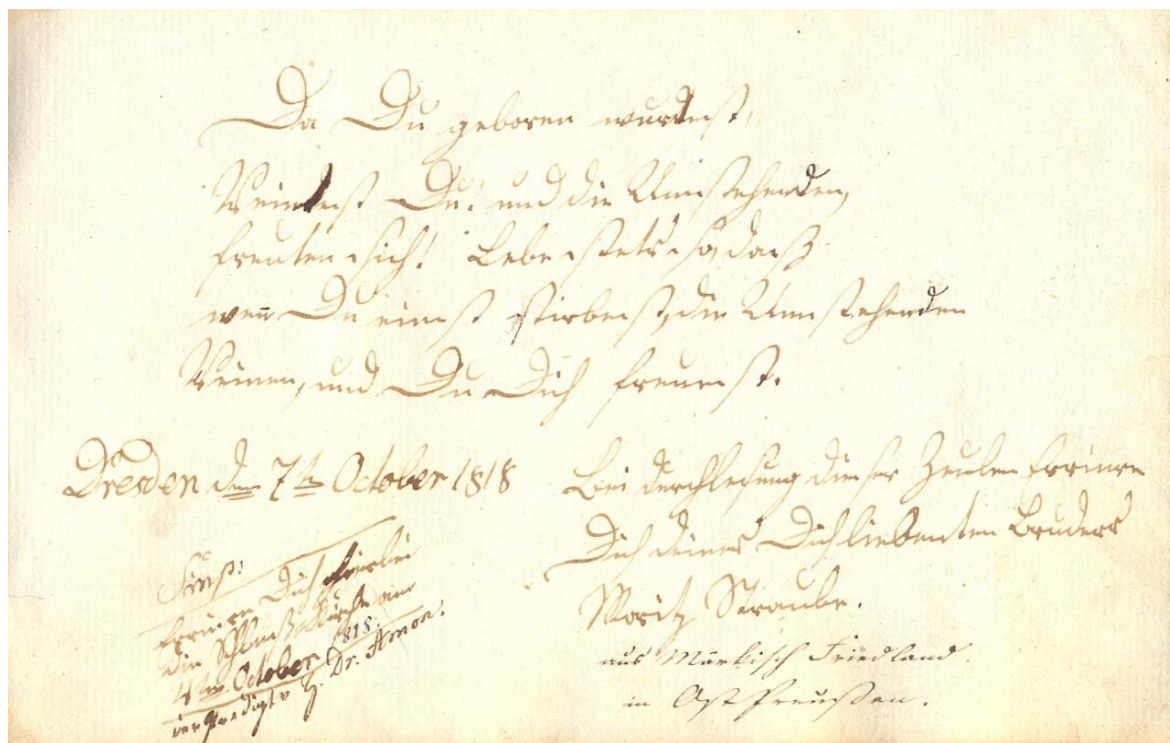 Da Du geboren wurdest,
Weintest Du! und die Umstehenden,
freuten sich! Lebe stets so, daß
weñ Du einst stirbest, die Umstehenden
Weinen, und Du Dich freuest.
Dresden den 7ten October 1818
Bei durchlesung dieser Zeulen errinre
Dich deines Dich liebenten Bruders
Moritz Straube.
aus Märkisch Friedland
in Ost Preußen.
Erinre Dich hierbei
die Schloß Kirche am
October 1818.
der Predigt v. H. Dr. Amon.